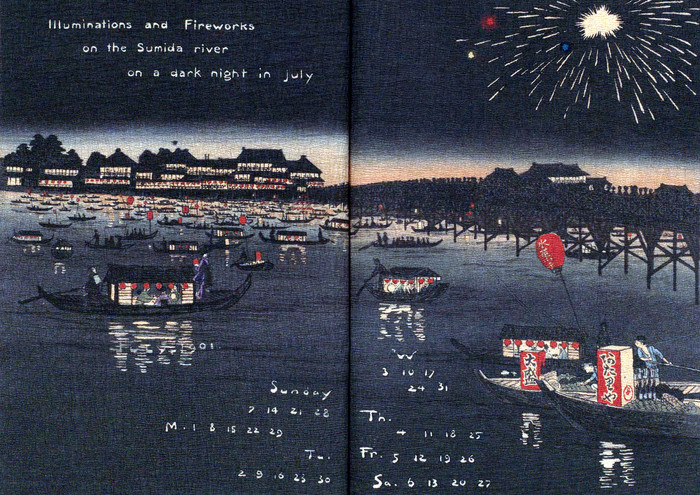 Illuminations and Fireworks
on the Sumida river
on a dark night in july
Sunday
7 14 21 28
M. 1 8 15 22 29
Tu.
2 9 16 23 30
W
3 10 17
24 31
Th.
4 11 18 25
Fr. 5 12 19 26
Sa. 6 13 20 27
大盛
あたりや